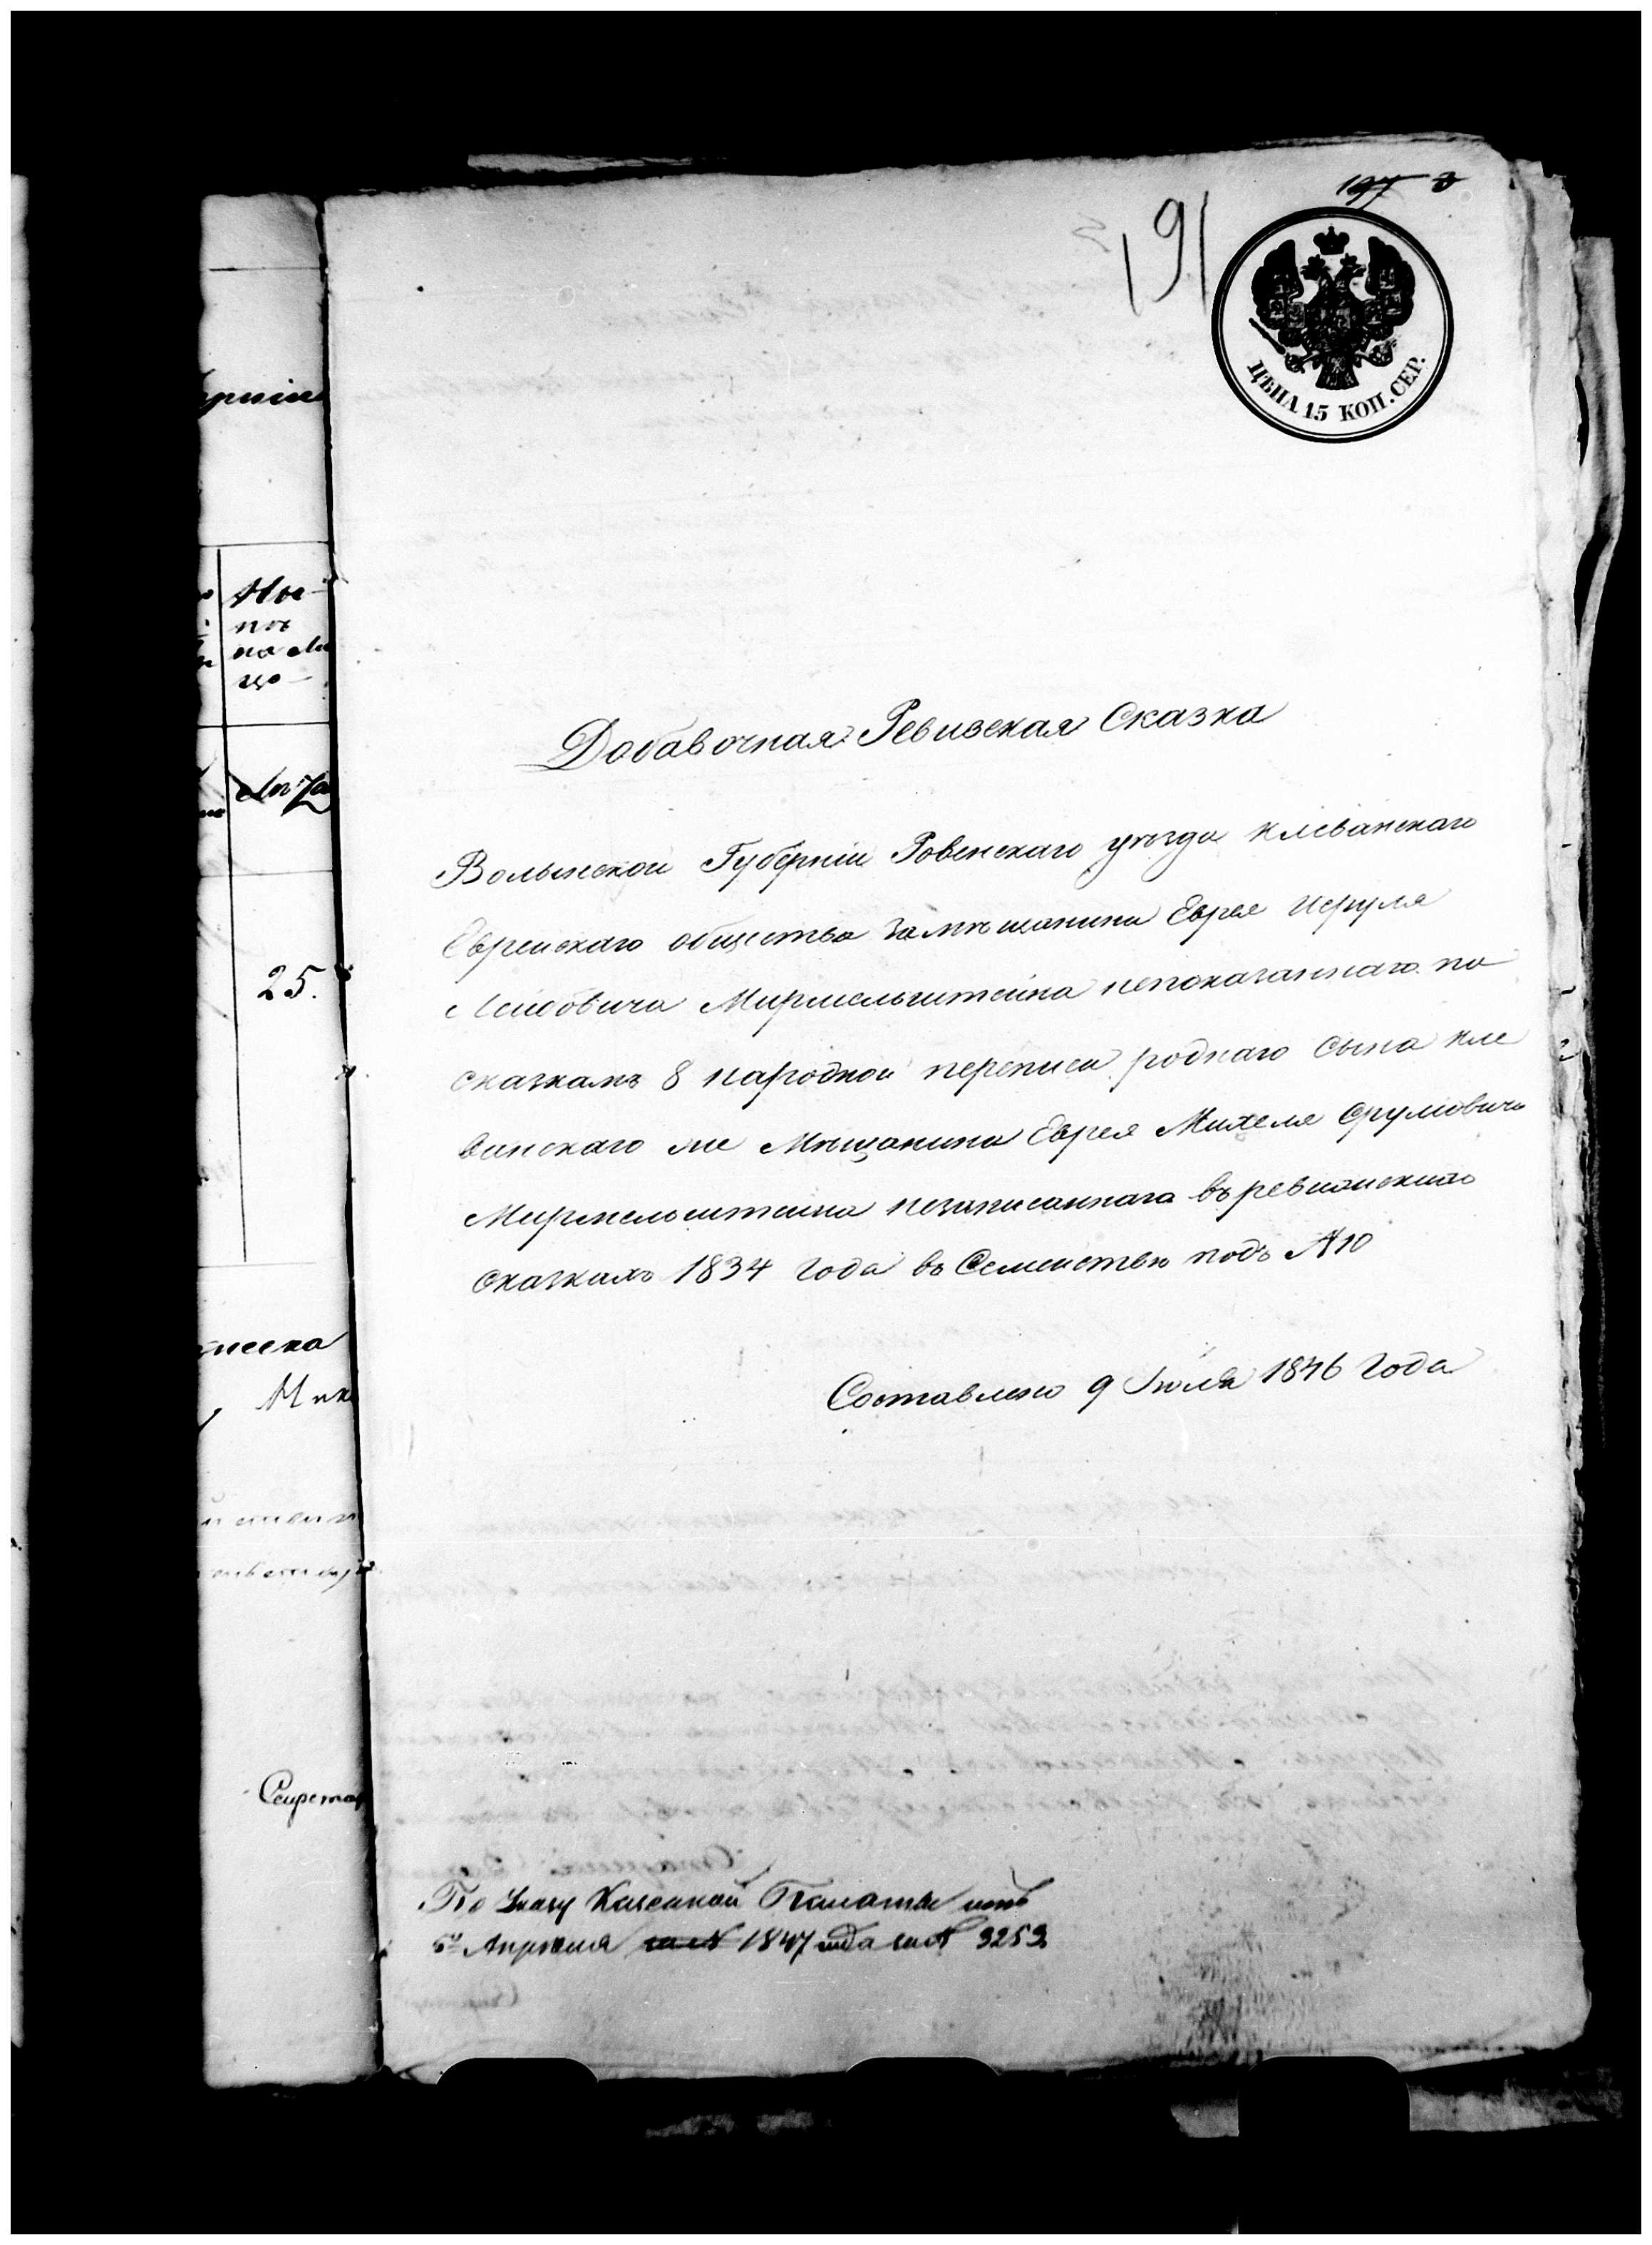 191
ЦѢНА 15 КОП. СЕР.
Добавочная Ревизская Сказка
Волынской Губерніи Ровенскаго уѣзда Клеванскаго
Еврейскаго общества За мѣщанина Еврея Исруля
Лейбовича Мирмельштейна непоказаннаго по
сказкамъ 8 народной переписи роднаго сына Кле
ванскаго же Мѣщанина Еврея Михеля Срулiовича
Мирмельштейна незаписаннаго въ ревизских
сказкахъ 1834 года въ Семействѣ подъ №10
Составлено 9 Iюля 1846 года
По Указу Казенной Палаты отъ
5го Апрѣля 1847 года за № 3253
Ны-
нѣ
на ли
цо
25.
Секретар